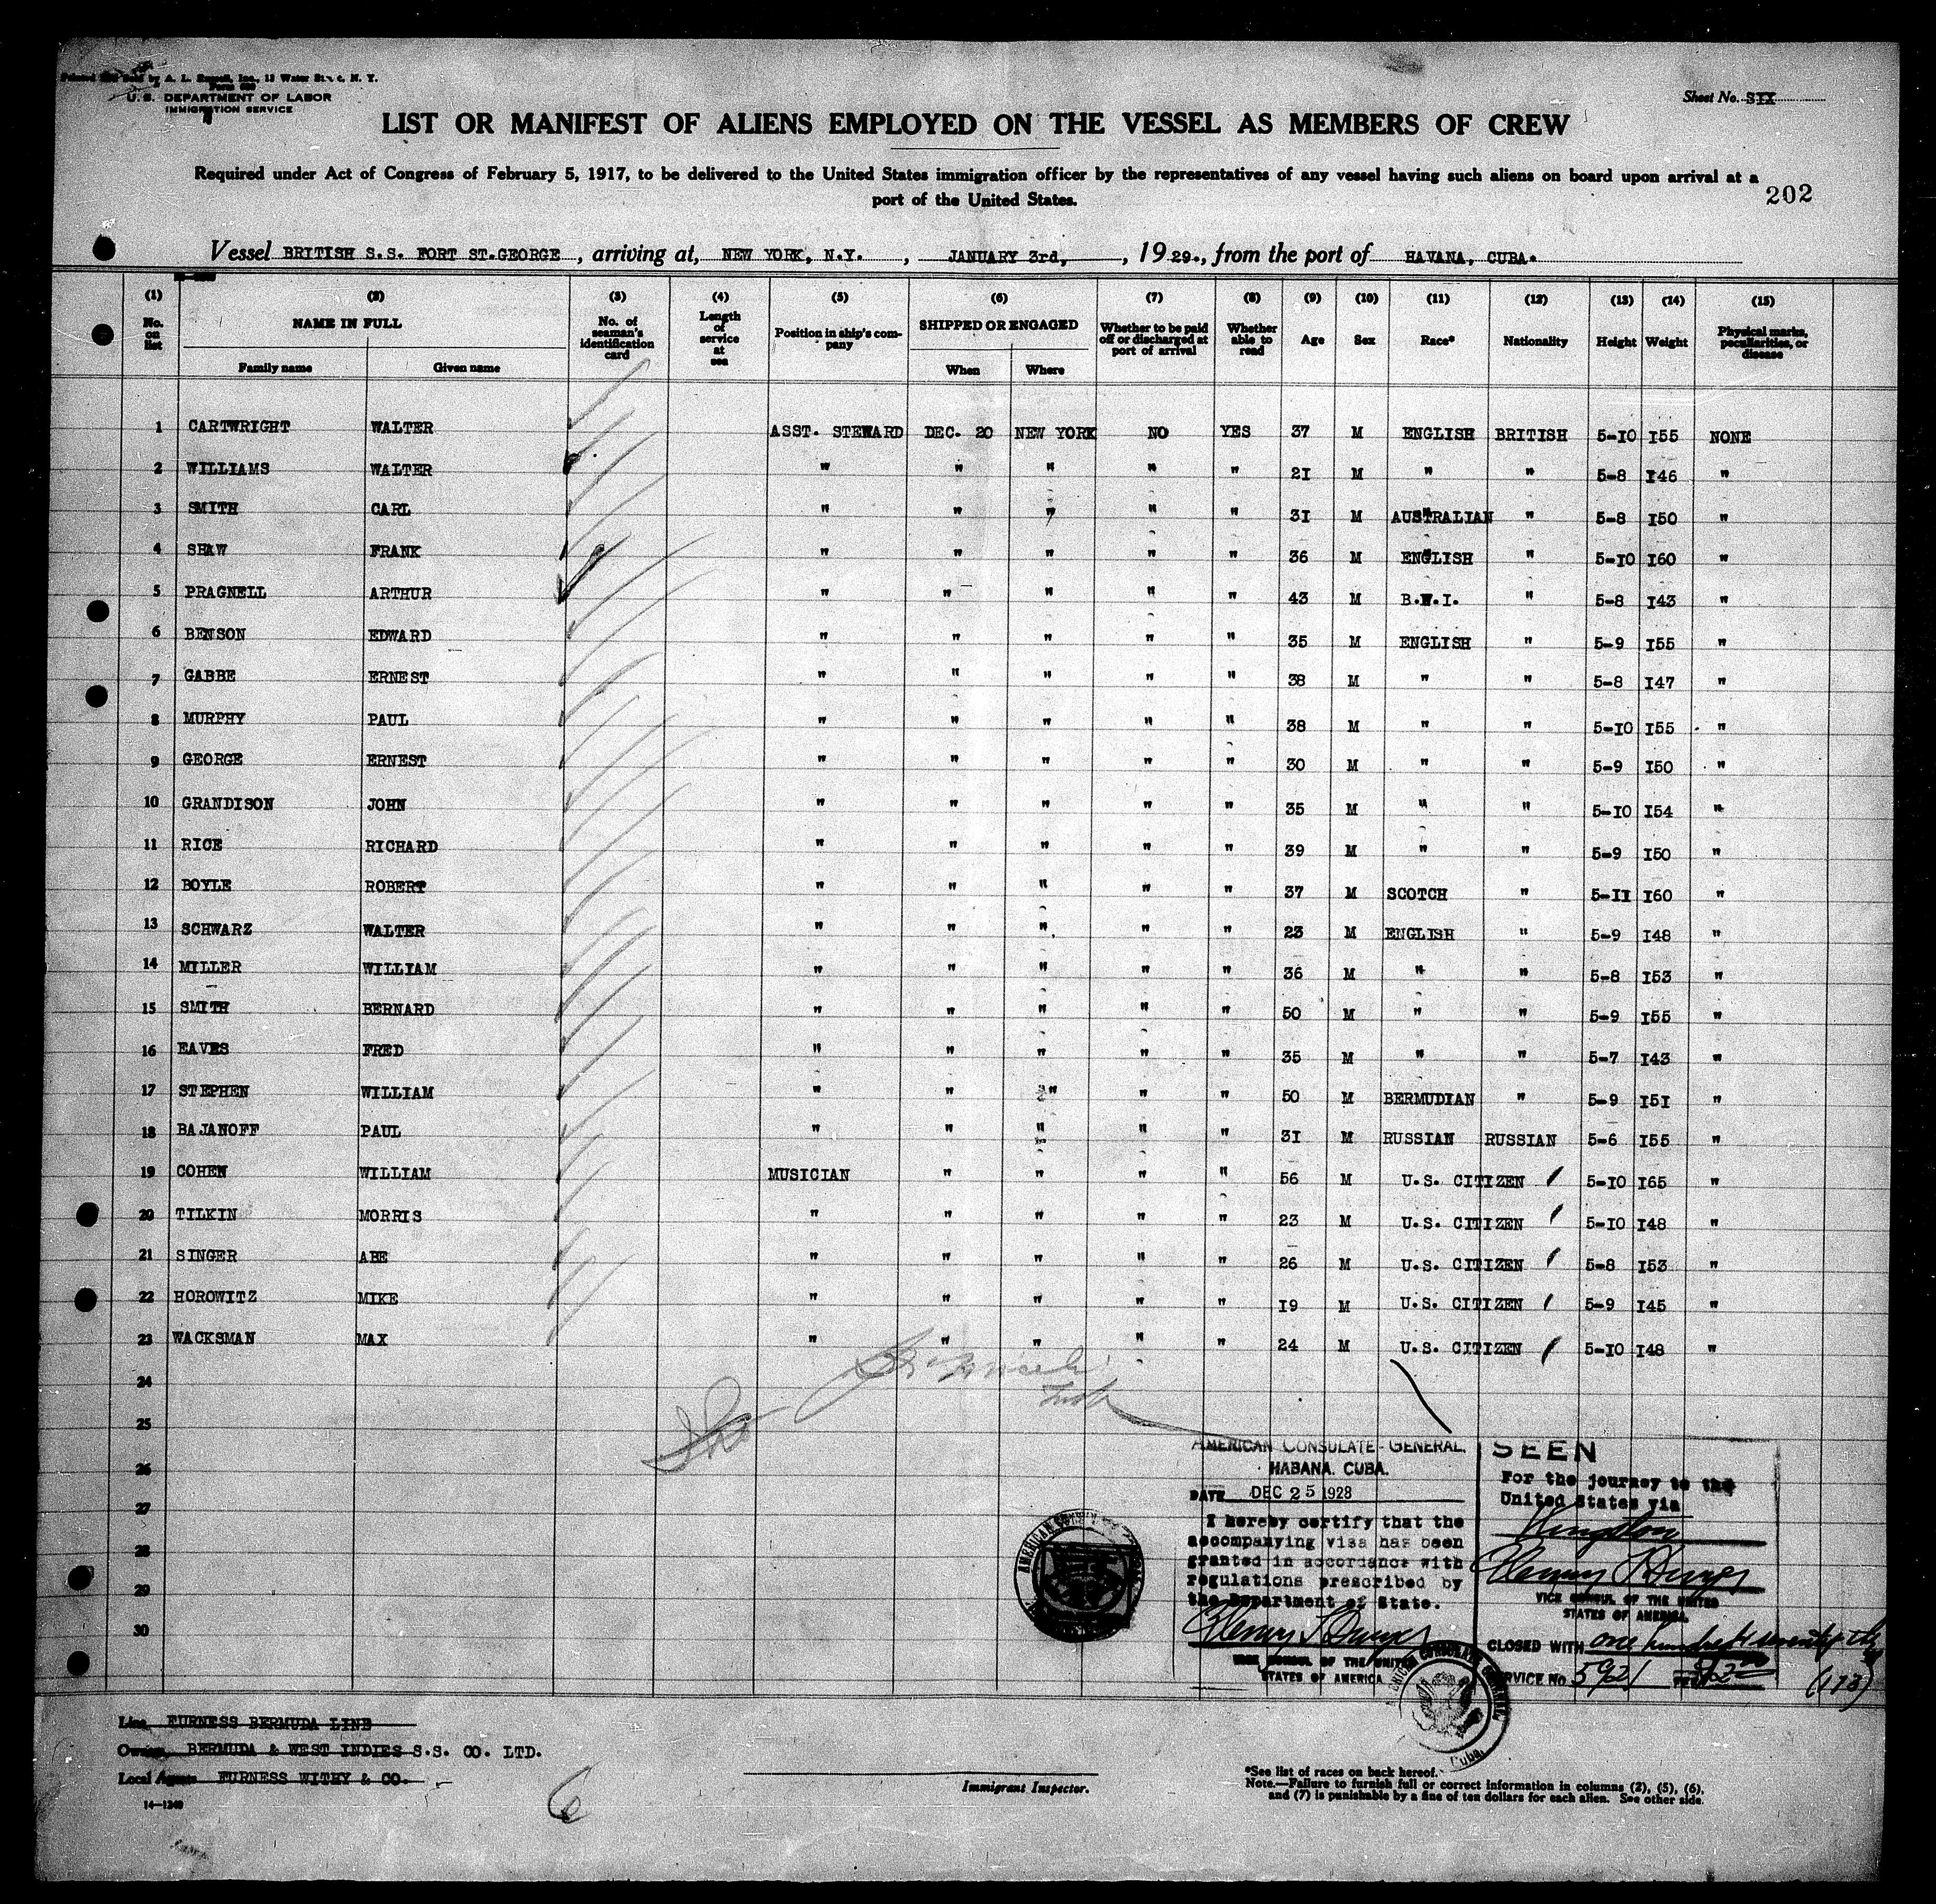 Printed and Sold by A. L. Russell, Inc., 13 Water St., N. Y.
U. S. DEPARTMENT OF LABOR
IMMIGRATION SERVICE
Sheet No. SIX
LIST OR MANIFEST OF ALIENS EMPLOYED ON THE VESSEL AS MEMBERS OF CREW
Required under Act of Congress of February 5, 1917, to be delivered to the United States immigration officer by the representatives of any vessel having such aliens on board upon arrival at a
port of the United States.
202
Vessel BRITISH S.S. FORT ST.GEORGE , arriving at, NEW YORK, N.Y. , JANUARY 3rd, , 19 29., from the port of HAVANA, CUBA.
(1) (2) (3) (4) (5) (6) (7) (8) (9) (10) (11) (12) (13) (14) (15)
No. on list NAME IN FULL Family name Given name No. of seaman's identification card Length of service at sea Position in ship's company SHIPPED OR ENGAGED When Where Whether to be paid off or discharged at port of arrival Whether able to read Age Sex Race* Nationality Height Weight Physical marks, peculiarities, or disease
1 CARTWRIGHT WALTER ASST. STEWARD DEC. 20 NEW YORK NO YES 37 M ENGLISH BRITISH 5-10 155 NONE
2 WILLIAMS WALTER " " " " " 21 M " " 5-8 146 "
3 SMITH CARL " " " " " 31 M AUSTRALIAN " 5-8 150 "
4 SHAW FRANK " " " " " 36 M ENGLISH " 5-10 160 "
5 PRAGNELL ARTHUR " " " " " 43 M B.W.I. " 5-8 143 "
6 BENSON EDWARD " " " " " 35 M ENGLISH " 5-9 155 "
7 GABBE ERNEST " " " " " 38 M " " 5-8 147 "
8 MURPHY PAUL " " " " " 38 M " " 5-10 155 "
9 GEORGE ERNEST " " " " " 30 M " " 5-9 150 "
10 GRANDISON JOHN " " " " " 35 M " " 5-10 154 "
11 RICE RICHARD " " " " " 39 M " " 5-9 150 "
12 BOYLE ROBERT " " " " " 37 M SCOTCH " 5-11 160 "
13 SCHWARZ WALTER " " " " " 23 M ENGLISH " 5-9 148 "
14 MILLER WILLIAM " " " " " 36 M " " 5-8 153 "
15 SMITH BERNARD " " " " " 50 M " " 5-9 155 "
16 EAVES FRED " " " " " 35 M " " 5-7 143 "
17 STEPHEN WILLIAM " " " " " 50 M BERMUDIAN " 5-9 151 "
18 BAJANOFF PAUL " " " " " 31 M RUSSIAN RUSSIAN 5-6 155 "
19 COHEN WILLIAM MUSICIAN " " " " 56 M U.S. CITIZEN 5-10 165 "
20 TILKIN MORRIS " " " " " 23 M U.S. CITIZEN 5-10 148 "
21 SINGER ABE " " " " " 26 M U.S. CITIZEN 5-8 153 "
22 HOROWITZ MIKE " " " " " 19 M U.S. CITIZEN 5-9 145 "
23 WACKSMAN MAX " " " " " 24 M U.S. CITIZEN 5-10 148 "
24
25
26
27
28
29
30
AMERICAN CONSULATE-GENERAL.
HABANA. CUBA.
DATE DEC 25 1928
I hereby certify that the
accompanying visa has been
granted in accordance with
regulations prescribed by
the Department of State.
VICE CONSUL OF THE UNITED
STATES OF AMERICA
SEEN
For the journey to the
United States via
Kingston
VICE CONSUL OF THE UNITED
STATES OF AMERICA.
CLOSED WITH one hundred seventy
SERVICE No. 5921
(173)
Cuba.
Line FURNESS BERMUDA LINE
Owner BERMUDA & WEST INDIES S.S. CO. LTD.
Local Agents FURNESS WITHY & CO.
14—1240
6
Immigrant Inspector.
*See list of races on back hereof.
Note.—Failure to furnish full or correct information in columns (2), (5), (6),
and (7) is punishable by a fine of ten dollars for each alien. See other side.